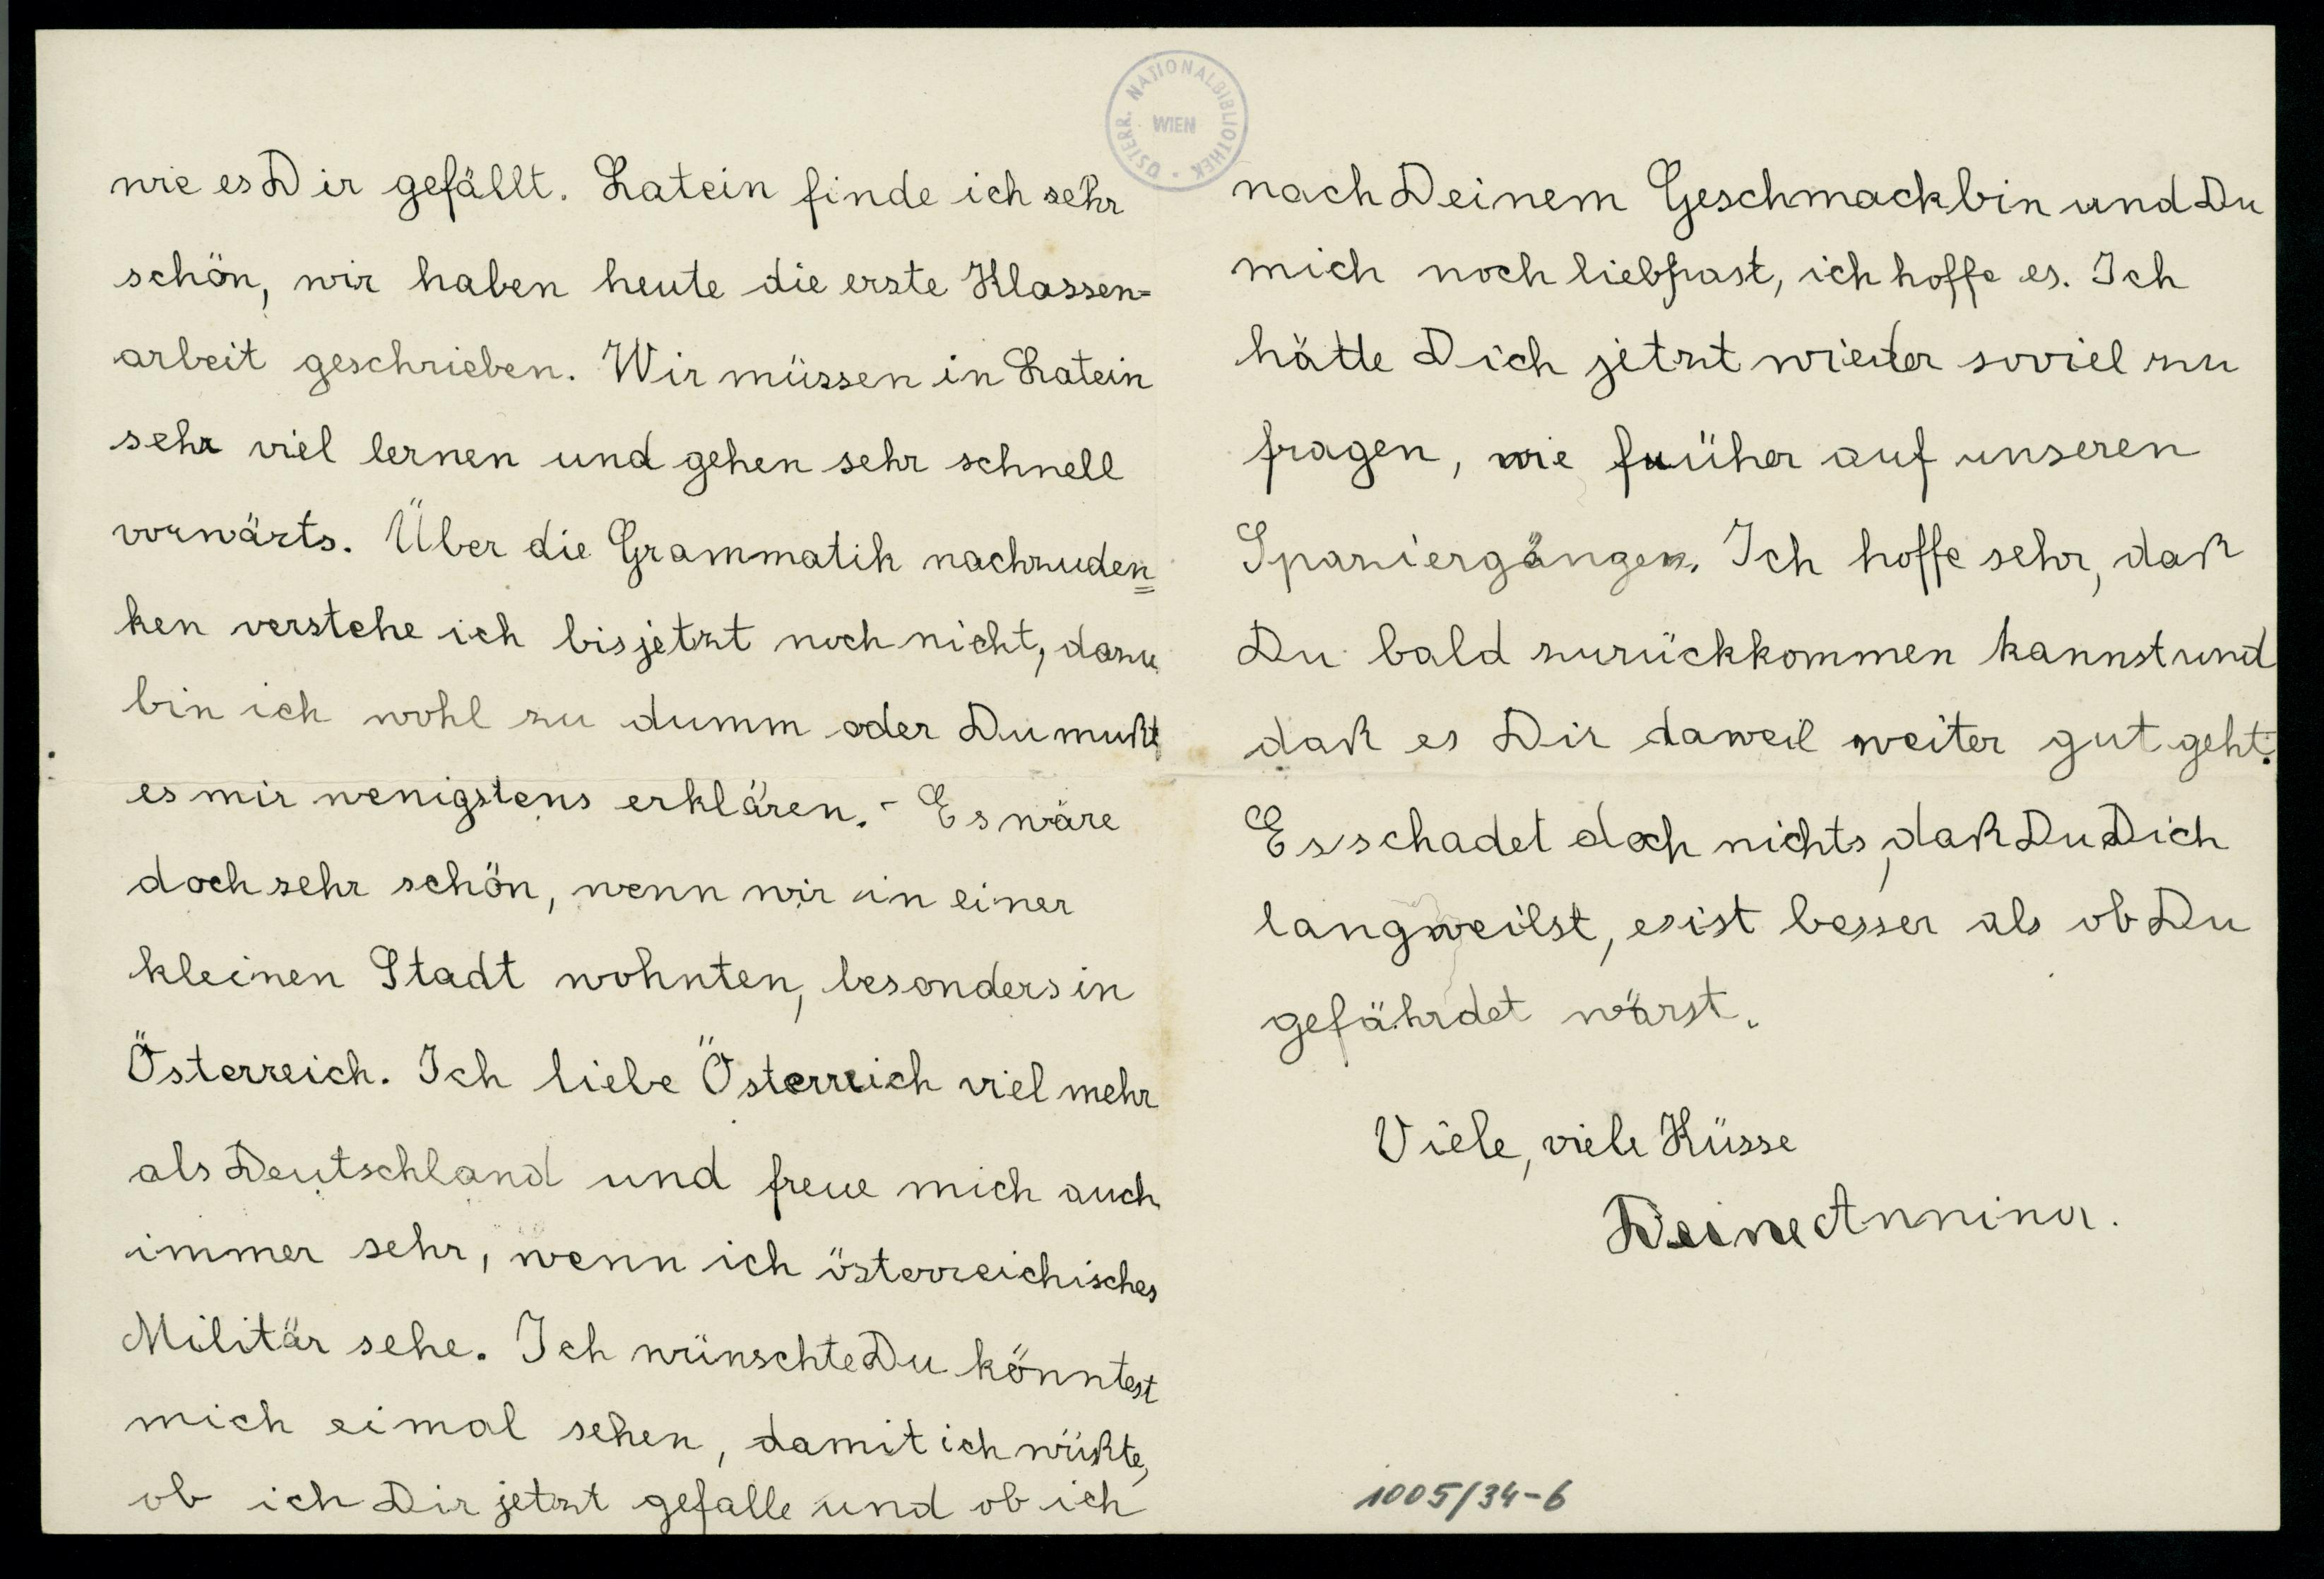 ÖSTERR. NATIONALBIBLIOTHEK
WIEN
wie es Dir gefällt. Latein finde ich sehr
schön, wir haben heute die erste Klassen=
arbeit geschrieben. Wir müssen in Latein
sehr viel lernen und gehen sehr schnell
vorwärts. Über die Grammatik nachzuden=
ken verstehe ich bis jetzt noch nicht, dazu
bin ich wohl zu dumm oder Du mußt
es mir wenigstens erklären. - Es wäre
doch sehr schön, wenn wir in einer
kleinen Stadt wohnten, besonders in
Österreich. Ich liebe Österreich viel mehr
als Deutschland und freue mich auch
immer sehr, wenn ich österreichisches
Militär sehe. Ich wünschte Du könntest
mich eimal sehen, damit ich wüßte,
ob ich Dir jetzt gefalle und ob ich
nach Deinem Geschmack bin und Du
mich noch liebhast, ich hoffe es. Ich
hätte Dich jetzt wieder soviel zu
fragen, wie früher auf unseren
Spaziergängen. Ich hoffe sehr, daß
Du bald zurückkommen kannst und
daß es Dir daweil weiter gut geht.
Es schadet doch nichts, daß Du Dich
langweilst, es ist besser als ob Du
gefährdet wärst.
Viele, viele Küsse
Deine Annina.
1005/34-6